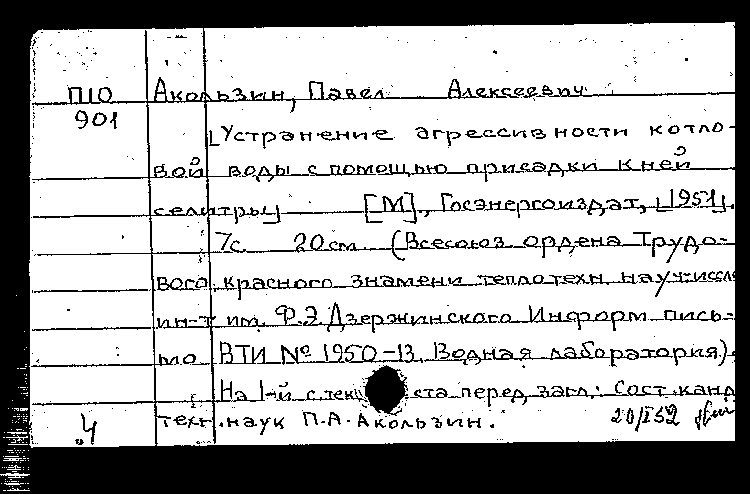 П10 Акользин, Павел Алексеевич
901
Устранение агрессивности котло-
вой воды с помощью присадки к ней
селитры [М]., Госэнергоиздат, 1951.
7с. 20см. (Всесоюз. ордена Трудо-
вого красного знамени теплотехн. науч-иссле
ин-т им. Ф.Э. Дзержинского Информ. пись-
мо ВТИ № 1950-13. Водная лаборатория).
На 1-й с. тек ста перед загл.: Сост. канд
техн. наук П.А. Акользин.
4 20/I 52